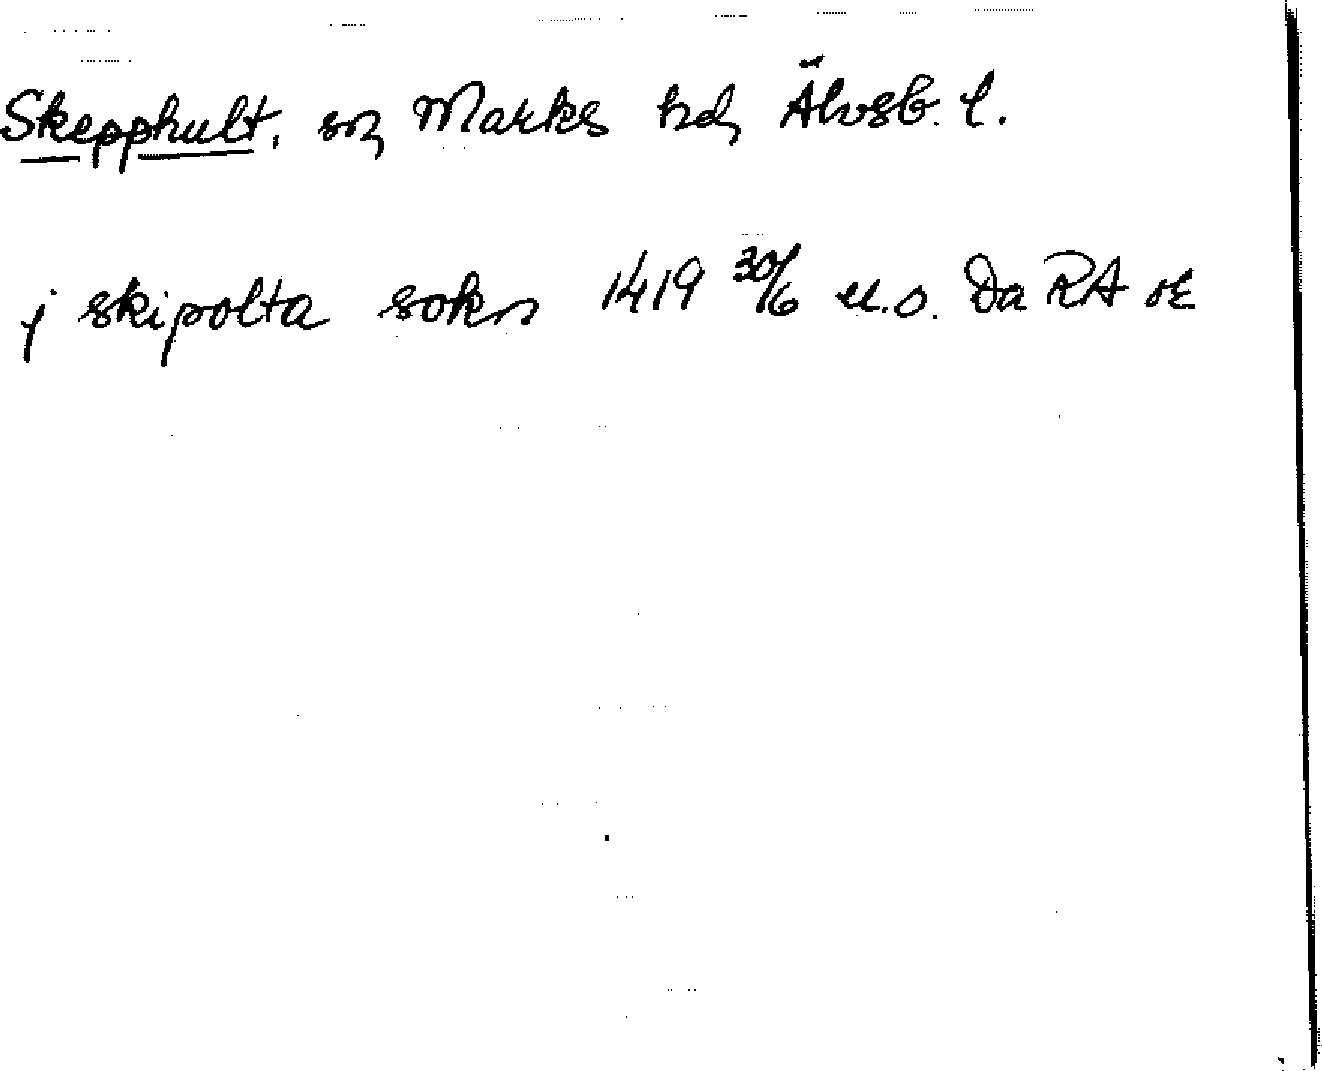 Skepphult, sn Marks hd, Älvsb. l.
j skipolta sokn 1419 30/6 u.o. Da RA OE